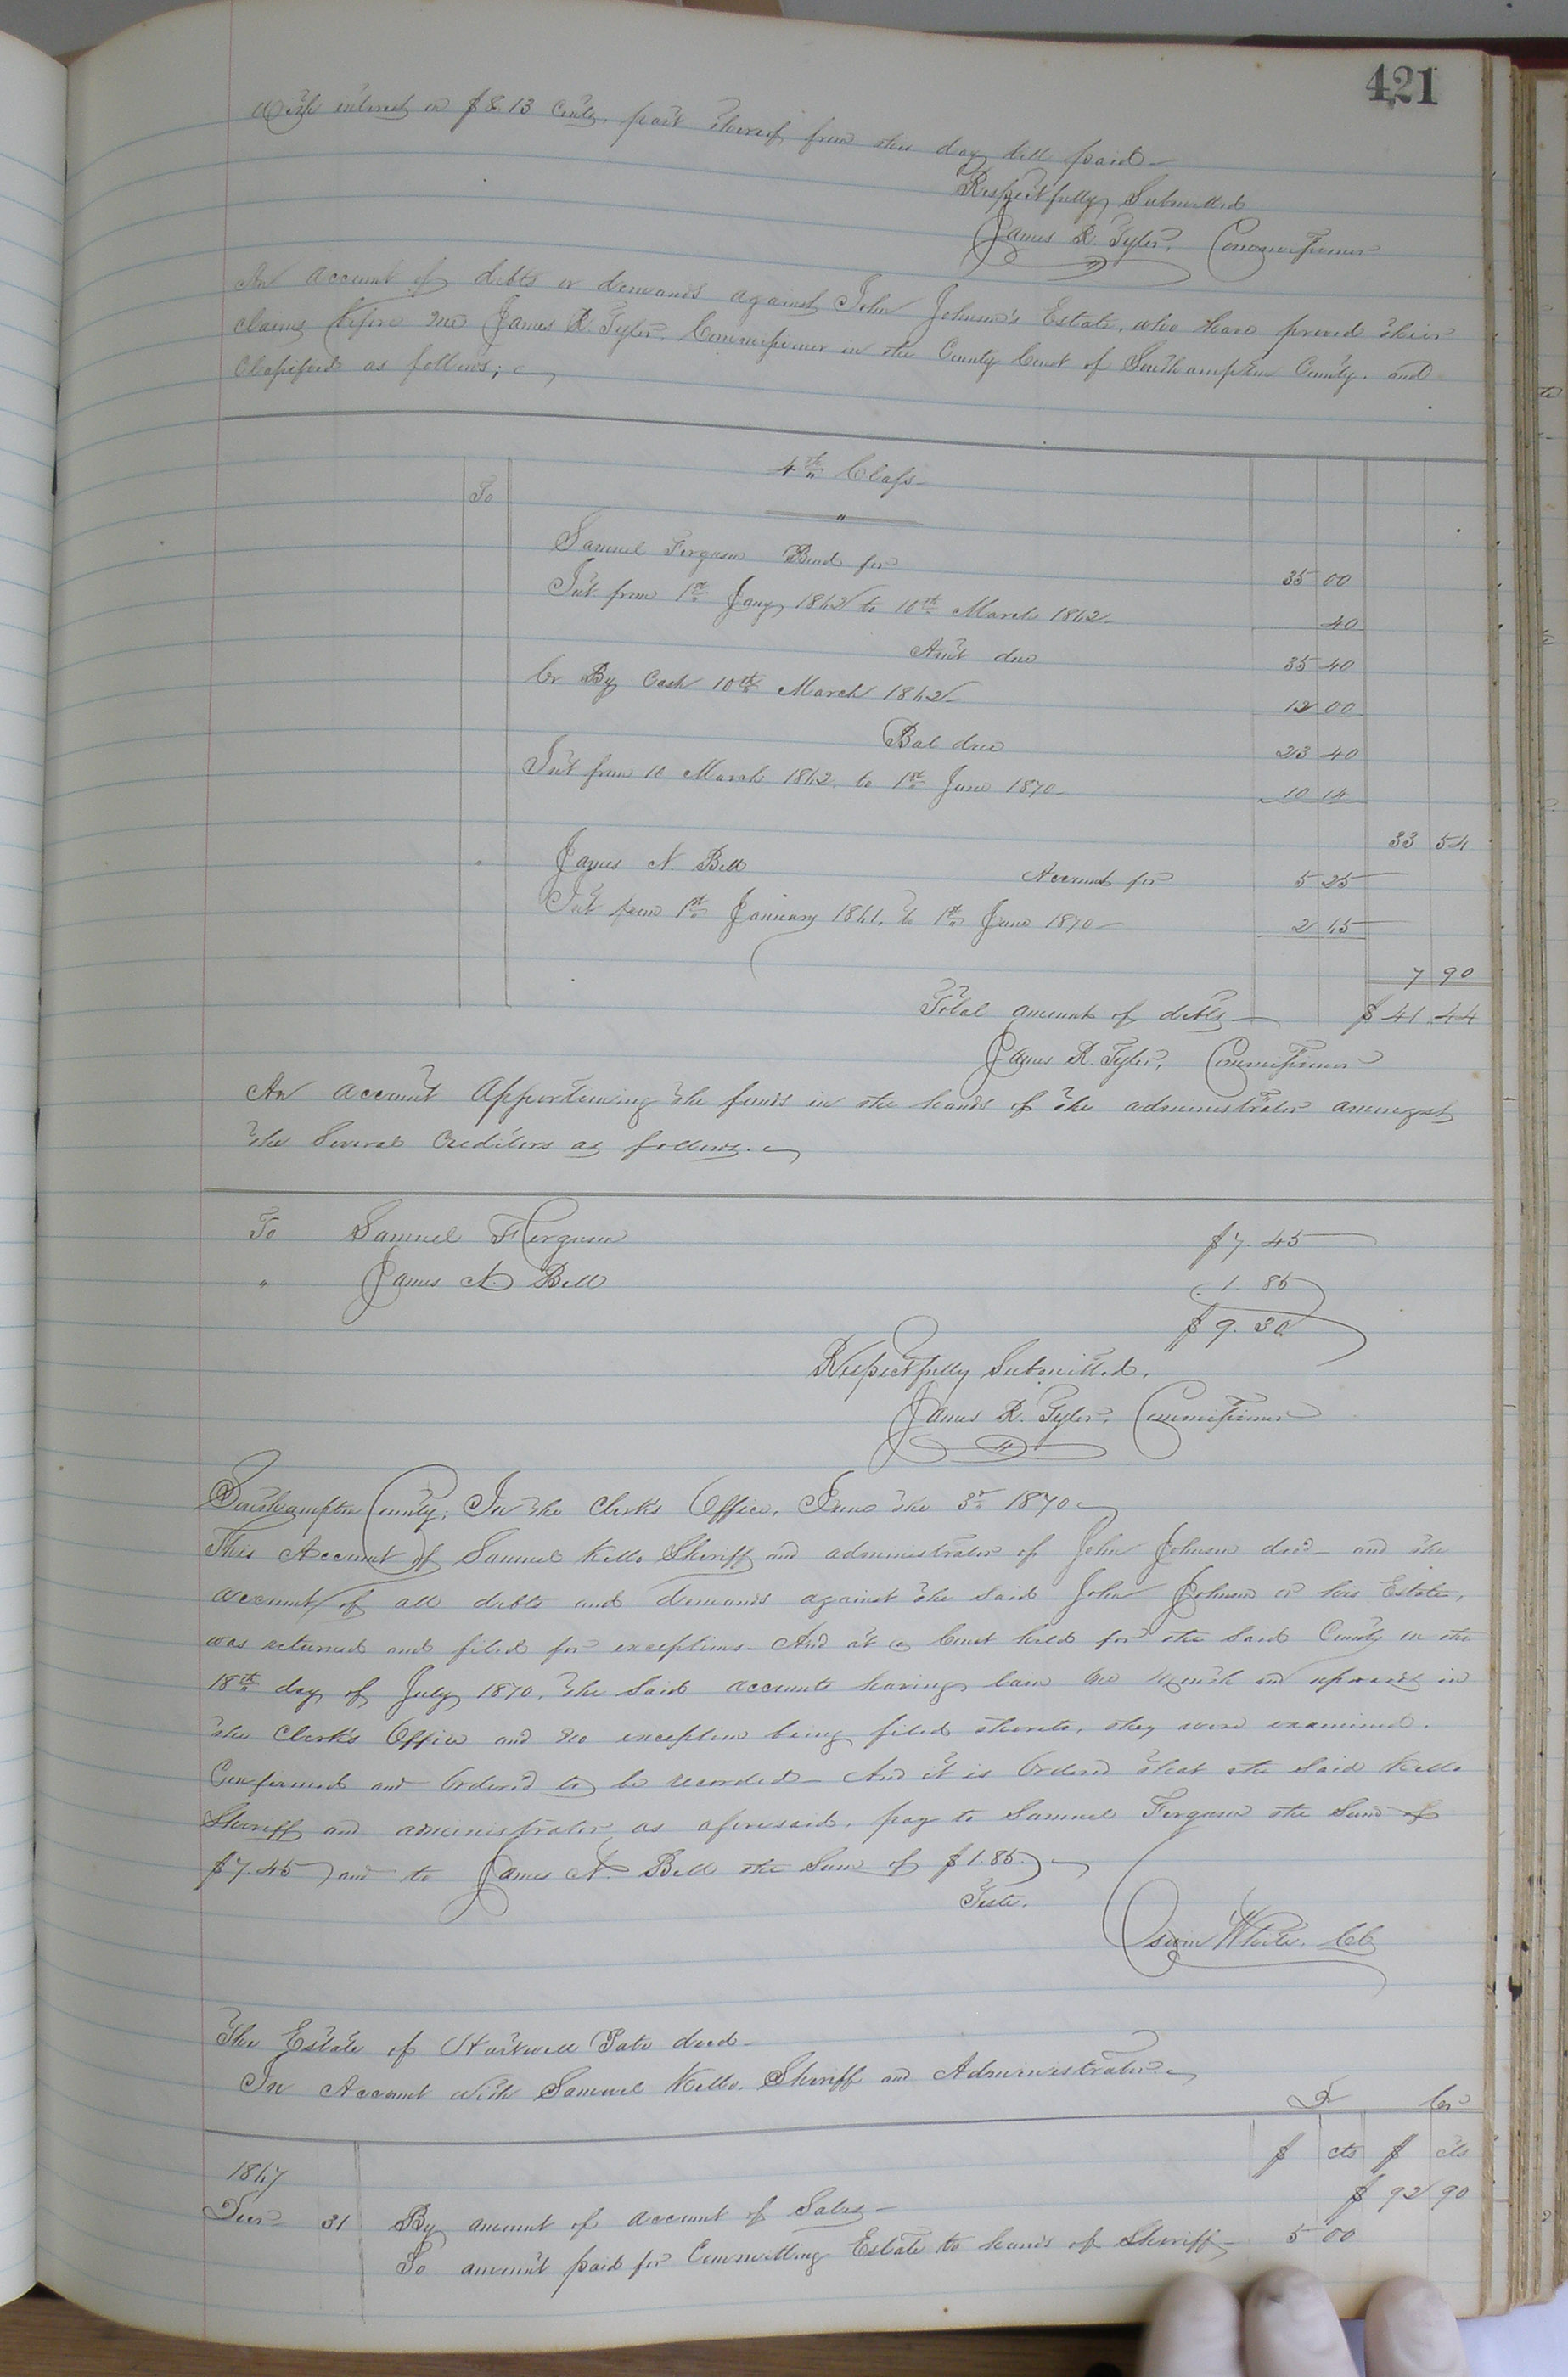 421
With interest on $8.13 Cents, part thereof from this day till paid—
Respectfully Submitted
James R. Tyler, Commissioner
An account of debts or demands against John Johnson's Estate, who have proved their
claims before me James R. Tyler, Commissioner in the County Court of Southampton County, and
Classified as follows;
4th Class
To
Samuel Ferguson Bond for 35 00
Int from 1st Jany 1862 to 10th March 1862 40
Am't due 35 40
Cr By Cash 10th March 1862 12 00
Bal due 23 40
Int from 10 March 1862 to 1st June 1870 10 14
33 54
James N. Bell Account for 5 25
Int from 1st January 1861, to 1st June 1870 2 65
7 90
Total amount of debts $41.44
James R. Tyler, Commissioner
An account Apportioning the funds in the hands of the administrator amongst
the Several Creditors as follows.
To Samuel Ferguson $7.45
" James N. Bell 1.85
$9.30
Respectfully Submitted,
James R. Tyler, Commissioner
Southampton County; In the Clerk's Office, June the 3d 1870
This Account of Samuel Kello Sheriff and administrator of John Johnson decd— and the
account of all debts and demands against the said John Johnson or his Estate,
was returned and filed for exceptions— And at a Court held for the said County on the
18th day of July 1870, the said accounts having lain one month and upwards in
the Clerk's Office and no exception being filed thereto, they were examined,
Confirmed and Ordered to be recorded— And it is Ordered that the said Kello
Sheriff and administrator as aforesaid, pay to Samuel Ferguson the Sum of
$7.45 and to James N. Bell the Sum of $1.85.
Teste,
White, CC
The Estate of Hartwell Pate decd—
In Account with Samuel Kello, Sheriff and Administrator
Dr Cr
$ cts $ cts
1867
Decr 31 By amount of account of Sales— $ 92 90
To amount paid for Committing Estate to hands of Sheriff— 5 00